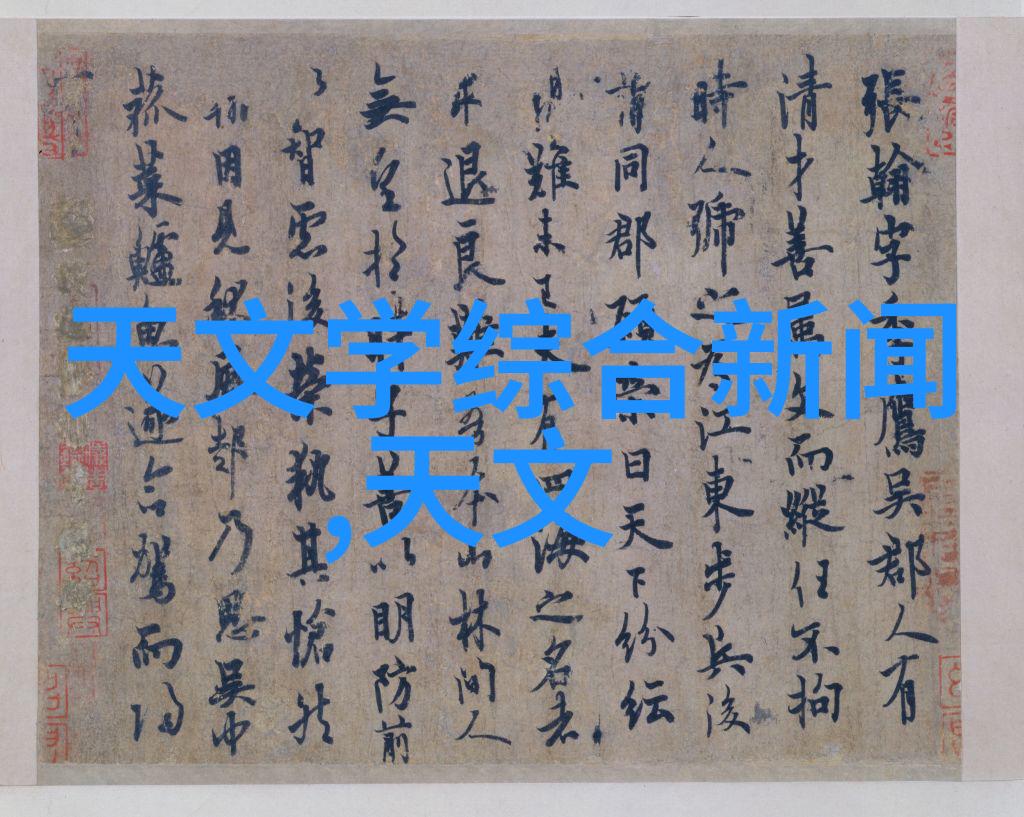 天文学综合新闻
,天文
張翰字季鷹吳郡人有
清才善屬文而縱任不拘
時人號之為江東步兵後
謂同郡顧榮曰天下紛紜
難未已夫有四海之名者
求退良難吾本山林間人
無望於時子善以明防前
以智慮後榮執其愴然
翰因見秋風起乃思吳中
菰菜鱸魚遂命駕而歸